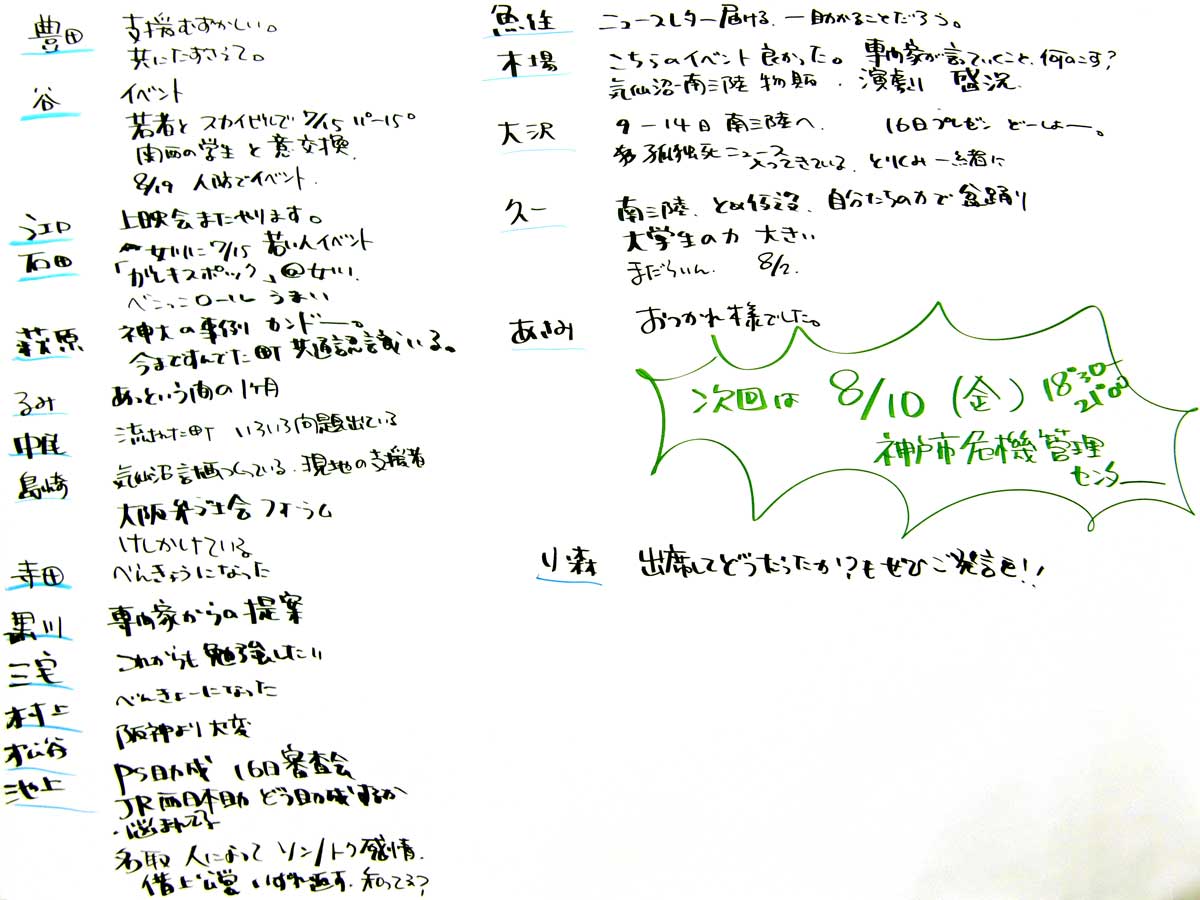 豊田 支援むずかしい。
共にたずさって。
谷 イベント
若者と スカイゼルで 7/15 11°-15°
関西の学生と意交換
8/19 人防でイベント.
江口 上映会またやります。
石田 女川に 7/15 若い人イベント
「がんキスポック」@女川
ベニっこロール うまい
萩原 神大の事例 カンドー。
今まですんでた町 共通認識いる。
るみ あっという間の1ヶ月
中尾 流された町 いろいろ問題出ている
島崎 気仙沼 つくっている. 現地の支援者
大阪弁ゴ士会 フォーラム
けしかけている
寺田 べんきょうになった
黒川 専門家からの提案
三宅 これからも勉強したい
村上 べんきょーになった
松谷 阪神より大変
池上 PS助成 16日審査会
JR西日本助 どう助成するか
・悩まれてる
名取 人によって ソン/トク感情.
借上公営 いずれ返す. 知ってる?
魚住 ニュースレター届ける. 一助かることだろう。
木場 こちらのイベント良かった。 専門家が言っていくこと. 何のこす?
気仙沼-南三陸 物販 ・ 演劇 盛況
大沢 9-14日 南三陸へ. 16日プレゼン どーしよー。
孤独死ニュース
入ってきている. とりくみ一緒に
久一 南三陸. とめ仮設. 自分たちの力で盆踊り
大学生の力 大きい
まだらいん. 8/2.
あさみ おつかれ様でした。
次回は 8/10 (金) 18°30-
21°00
神戸市危機管理
センター
り森 出席してどうだったか!?もぜひご発言を!!